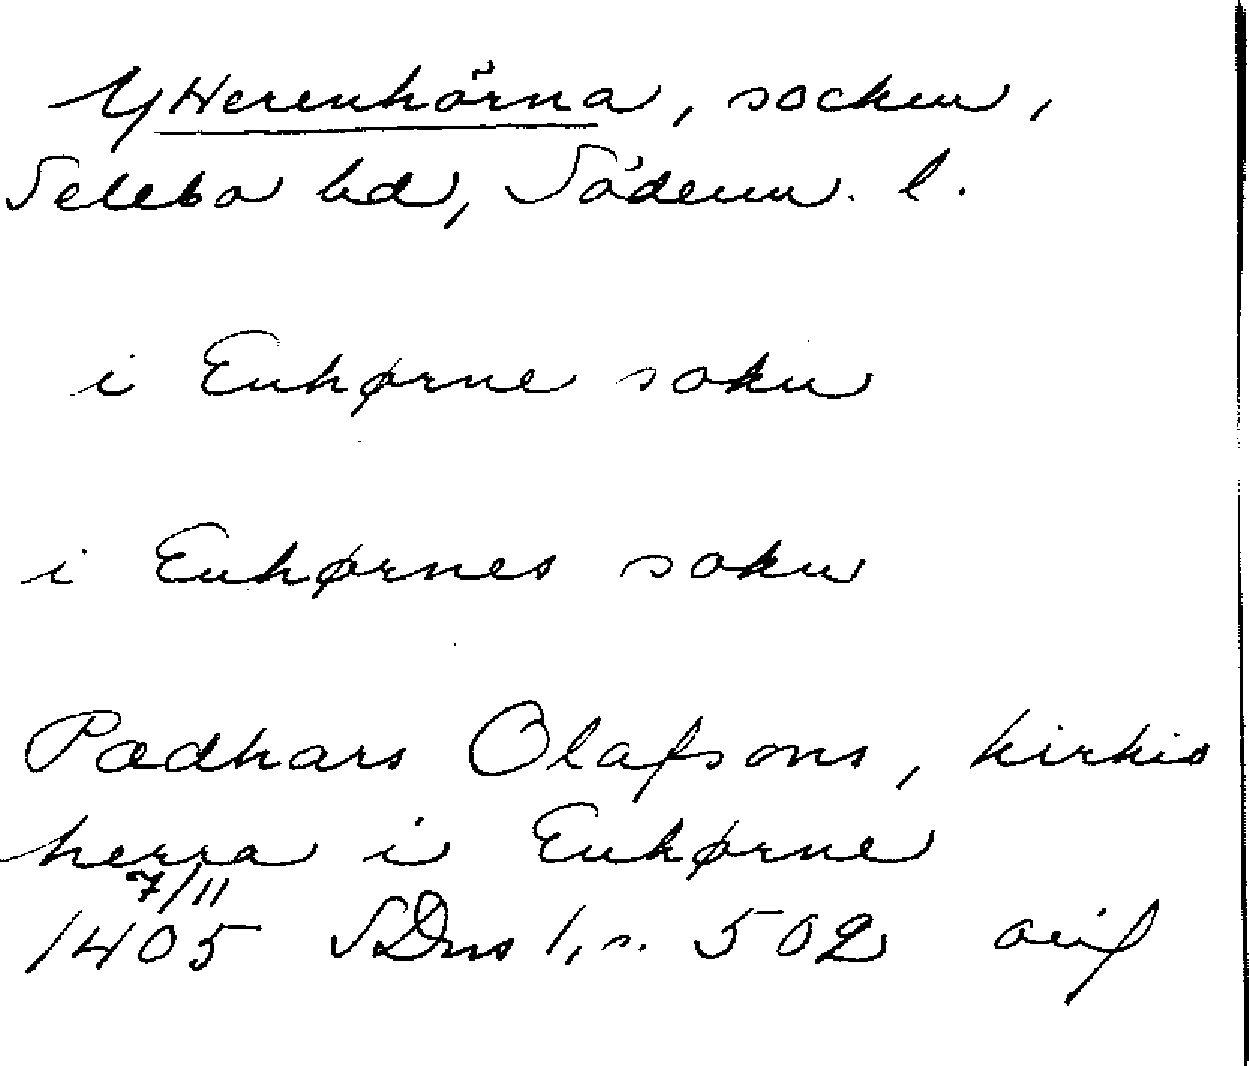 Ytterenhörna, socken,
Selebo hd, Söderm. l.
i Enhørne sokn
i Enhørnes sokn
Pædhars Olafsons, kirkio
herra i Enhørne
7/11
1405 SDns 1, s. 502